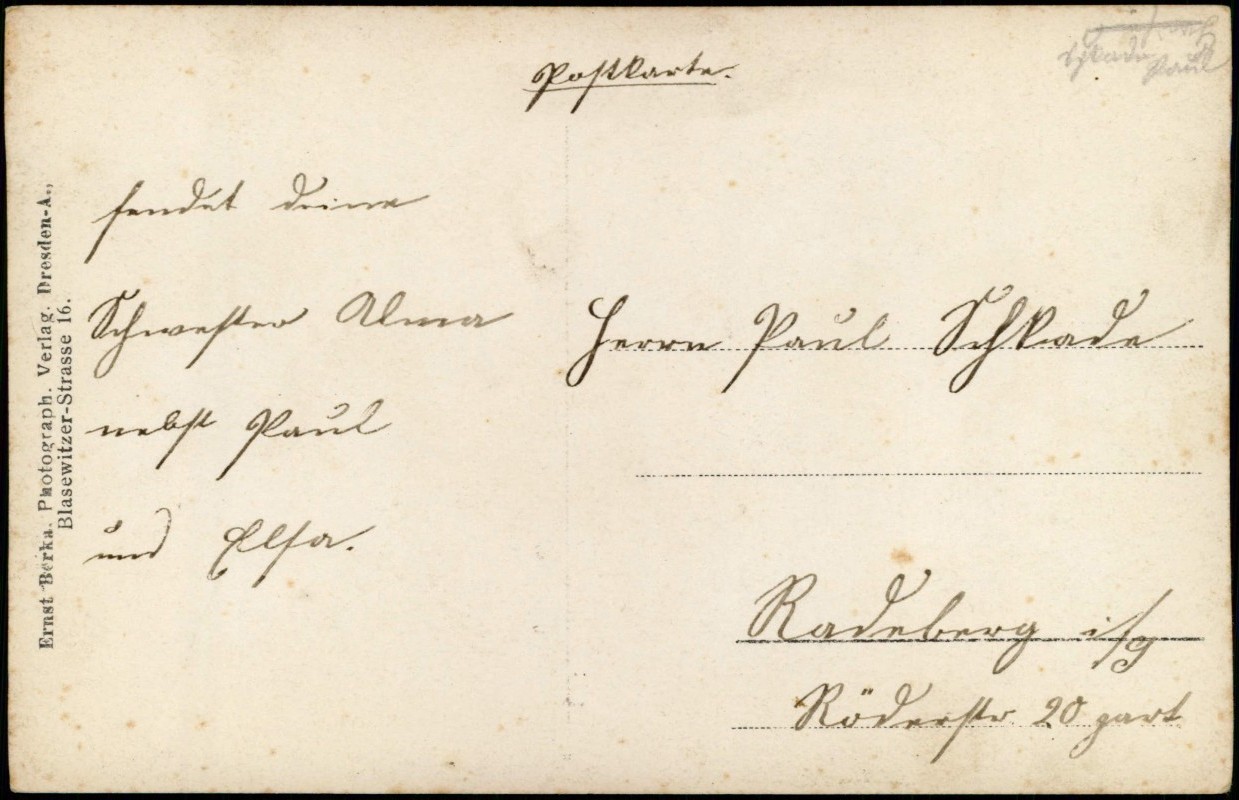 Postkarte.
Schkade
Paul
sendet deine
Schwester Alma
nebst Paul
und Elsa.
Herrn Paul Schkade
Radeberg i/S
Röderstr. 20 part
Ernst Berka. Photograph. Verlag. Dresden-A.,
Blasewitzer-Strasse 16.